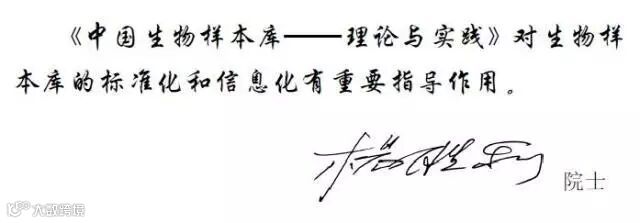 《中国生物样本库——理论与实践》对生物样
本库的标准化和信息化有重要指导作用。
杨胜利 院士
大数跨境